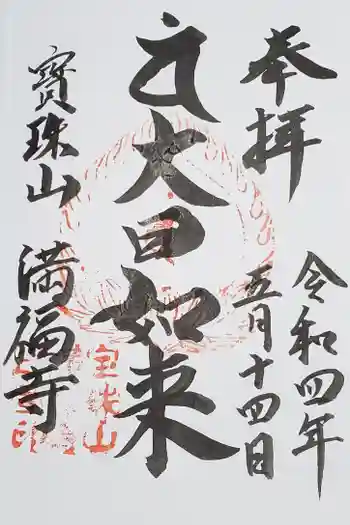 奉拝
令和四年
五月十四日
大日如来
寳珠山
満福寺